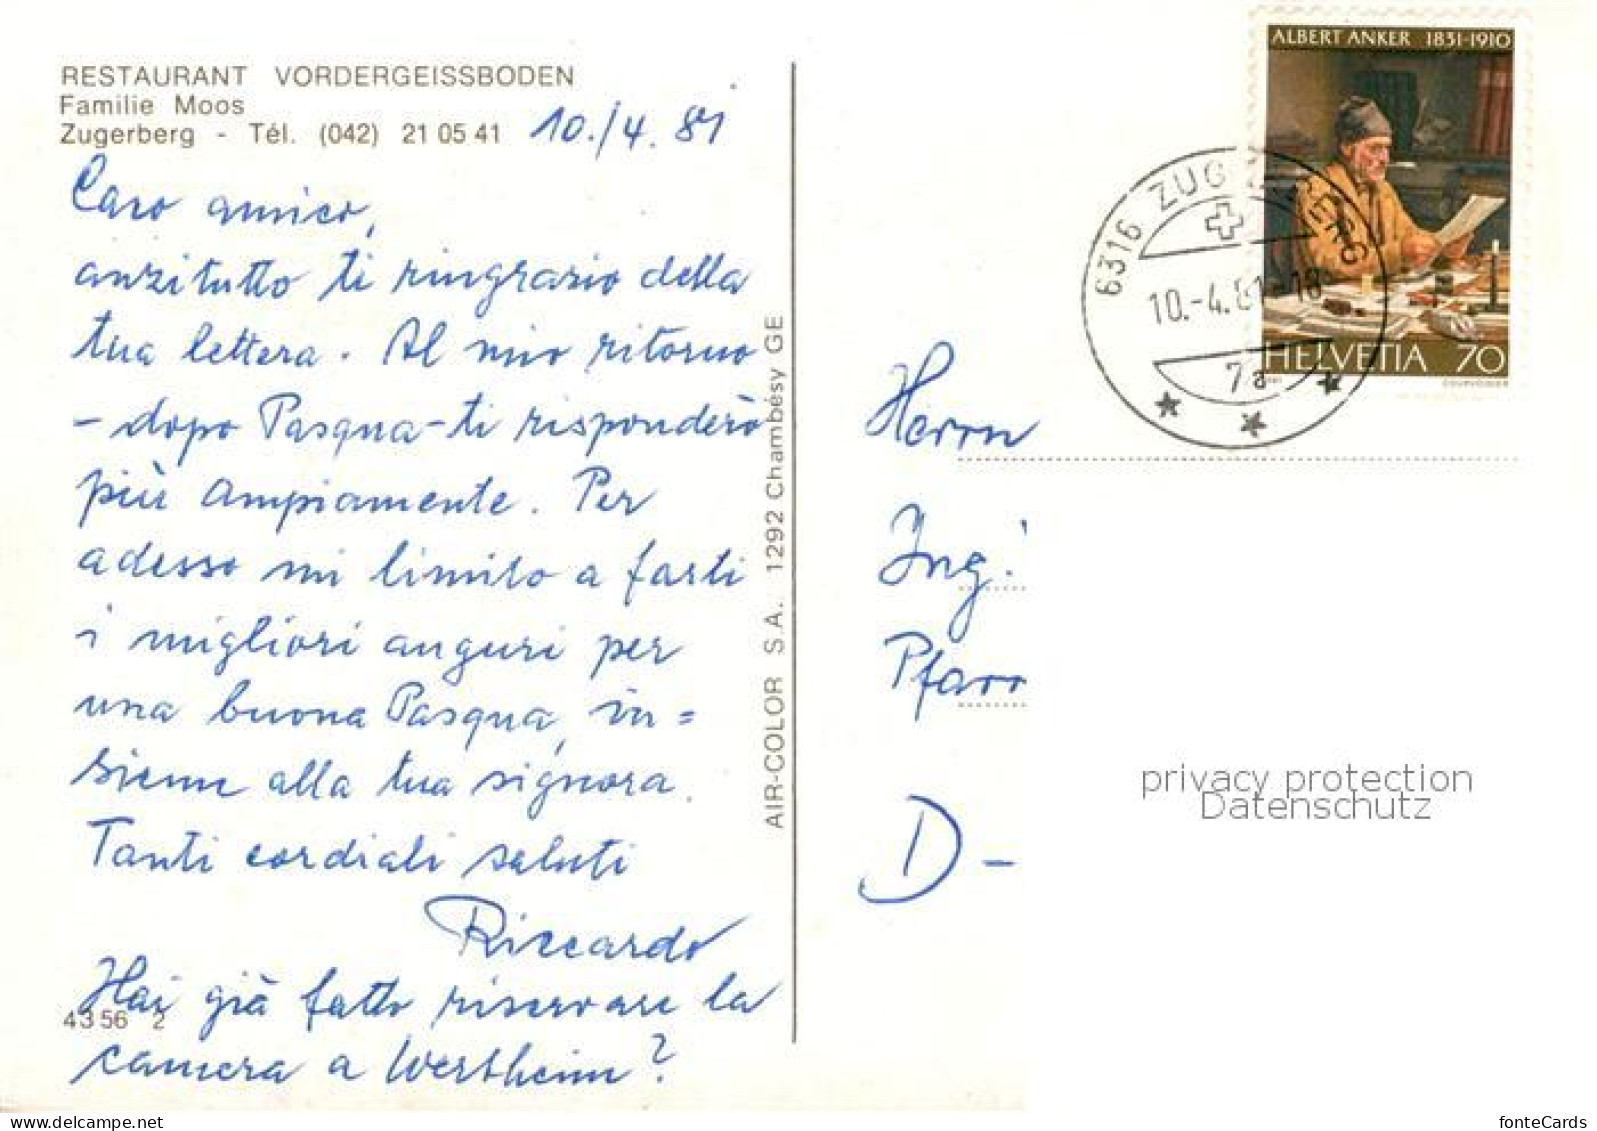 RESTAURANT VORDERGEISSBODEN
Familie Moos
Zugerberg - Tél. (042) 21 05 41
10./4. 81
Caro amico,
anzitutto ti ringrazio della
tua lettera. Al mio ritorno
- dopo Pasqua - ti risponderò
più ampiamente. Per
adesso mi limito a farti
i migliori auguri per
una buona Pasqua, in=
sieme alla tua signora.
Tanti cordiali saluti
Riccardo
Hai già fatto riservare la
camera a Wertheim?
4356 2
AIR-COLOR S.A. 1292 Chambésy GE
ALBERT ANKER 1831-1910
HELVETIA 70
COURVOISIER
6316 ZUGERBERG
10.-4.81-18
7a
Herrn
Ing.
Pfarr
D-
privacy protection
Datenschutz
fonteCards